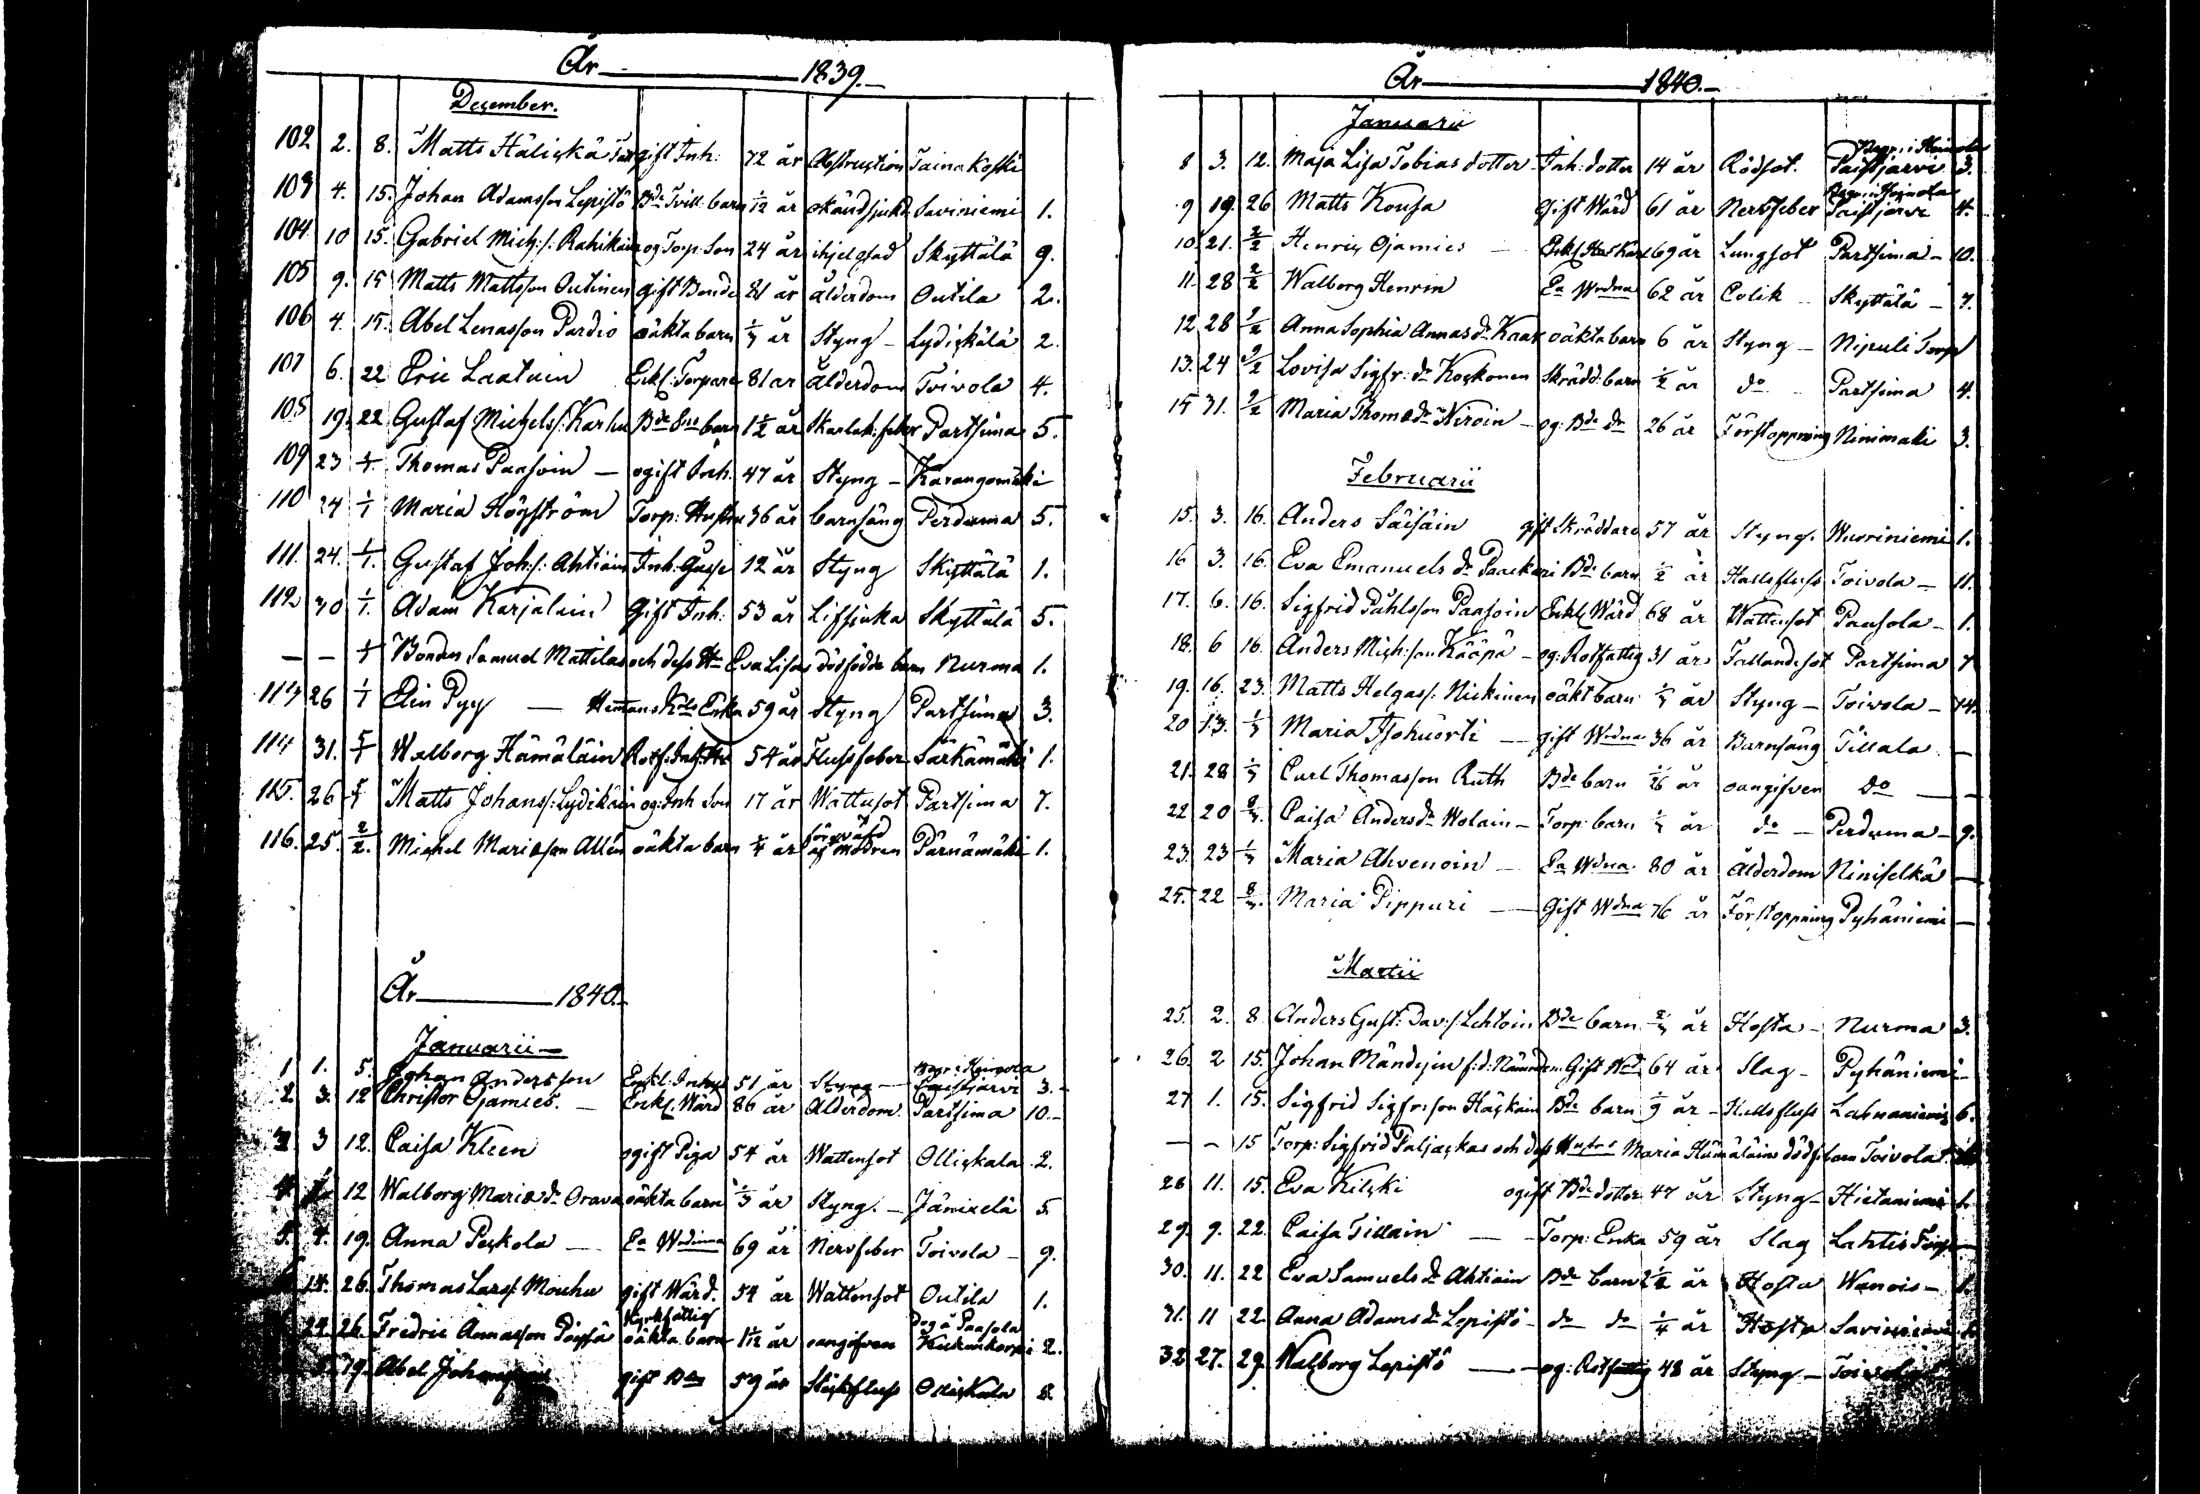 År 1839.
December.
102 2. 8. Matts Hälickä gift Inh. 72 år Obstruction Tainakoski
103 4. 15. Johan Adamsson Lepistö Bde Tvill. barn 1/12 år okänd sjukd. Saviniemi 1.
104 10 15. Gabriel Mich:s. Rahikain og Torp. Son 24 år ihjelslad Skyttälä 9.
105 9. 15 Matts Mattsson Outinen gift Bonde 81 år ålderdom Outila 2.
106 4. 15. Abel Lenasson Pardio oäkta barn år Styng – Lydickälä 2.
107 6. 22 Eric Laatuin Enkl: Torpare 81 år Ålderdom Toivola 4.
108 19. 22 Gustaf Michels: Karhu Bde Sns barn 1 1/2 år Skarlak: feber Partsima 5.
109 23 1/1. Thomas Paasoin – ogift Inh. 47 år Styng – Karangomäki
110 24 1/1 Maria Högström Torp: Hustru 36 år barnsäng Perduma 5.
111. 24. 1/1. Gustaf Joh:s: Ahtiain Inh. Gosse 12 år Styng Skyttälä 1.
112 30 1/1. Adam Karjalain Gift Inh: 53 år Lifsjuka Skyttälä 5.
– – 1/1 Bonden Samuel Mattilas och dess H. Eva Lisas dödfödde barn Nurma 1.
113 26 1/1 Elin Pyy – Enka 59 år Styng Partsima 3.
114 31. 5/1 Walborg Hämäläin Rotf. Inh. Hu 54 år Flussfeber Särkämäki 1.
115. 26 5/1 Matts Johans: Lydikäin og: Inh Son 17 år Wattusot Partsima 7.
116. 25. 2/2. Michel Mariæson Allén oäkta barn 1/4 år förqväfd af modren Pärnämäki 1.
År 1840.
Januarii –
Begr: i Heinola
1 1. 5. Johan Andersson Enkl. Inhys 51 år Styng – Paistjärvi 3.
2 3. 12 Christer Ojamies. – Enkl. Wärd 86 år Ålderdom Partsima 10.
3 12. Caisa Kleen ogift Piga 54 år Wattensot Ollickala 2.
12 Walborg Mariæ dr Orava oäkta barn år Styng. – Jänixelä 5.
5. 4. 19. Anna Peckola – Ea Wdinna 69 år Nervfeber Toivola – 9.
14. 26. Thomas Lars: Mouhu gift Wärd. 54 år Wattensot Outila 1.
Kyrkfattig Dog å Paasola
24. 26. Fredric Annasson Pöyssä oäkta barn 1 1/12 år oangifven 2.
19. Abel gift 59 år Ollickala
År 1840.
Januarii
Begr: i Heinola
8 3. 12. Maja Lisa Tobias dotter Inh: dotter 14 år Rödsot. Paistjärvi 3.
Begr: i Heinola
9 19. 26 Matts Kousa Gift Wärd 61 år Nervfeber Paistjärvi 4.
10. 21. 2/2 Henric Ojamies – Enkl. 69 år Lungsot Partsima – 10.
11. 28 2/2 Walborg Henrin Ea Wrdna 62 år Colik – Skyttälä – 7.
12 28 9/2 Anna Sophia Annas dr Kaar oäkta barn 6 år Styng – Nipuli Torp
13. 24 9/2 Lovisa Sigfr: dr Kockonen Skrädd: barn 1/2 år do Partsima 4.
31. 9/2 Maria Thomæ dr Niroin – og: Bde dr 26 år Förstoppning Ninimäki 3.
Februarii
15. 3. 16. Anders Säisäin gift Skräddare 57 år Styng. Wuoriniemi 1.
16 3. 16. Eva Emanuels dr Paackari Bde barn 1/2 år Hallsfluss Toivola – 11.
17. 6. 16. Sigfrid Påhlsson Paasoin Enkl. Wärd 68 år Wattensot Paasola – 1.
18. 6 16. Anders Mich:son Kääpä – og: Rotfattig 31 år Fallandesot Partsima 7
19. 16. 23. Matts Helgas: Nickinen oäkt barn år Styng – Toivola – 14.
20 13. 1/3 Maria – gift Wrdna 36 år Barnsäng Tillala –
21. 28 1/3 Carl Thomasson Ruth Bde barn år oangifven do –
22 20 8/3. Caisa Anders dr Wolain – Torp: barn år do – Perduma – 9.
23. 23 1/3 Maria Ahvenoin – Ea Wdna. 80 år Ålderdom Niniselkä –
24. 22 8/3. Maria Pippuri – Gift Wdna 76 år Förstoppning Pyhäniemi –
Martii
25. 2. 8 Anders Gust: Dav:s: Lehtoin Bde barn år Hosta – Nurma 3.
26. 2 15. Johan Mändyin f:d: Nämndem: Gift Wd 64 år Slag – Pyhäniemi –
27 1. 15. Sigfrid Sigfr:son Häckäin Bde barn 1/9 år – Hallsfluss Lahnaniemi 6.
– – 15 Torp: Sigfrid Paljackas och dess Hustrus Maria Hämäläins dödf: barn Toivola
28 11. 15. Eva Kilcki ogift Bde dotter 47 år Styng – Hietaniemi 1.
29. 9. 22. Caisa Tillain – Torp: Enka 59 år Slag Lahtis Torp
30. 11. 22 Eva Samuels dr Ahtiain Bde barn 2 1/2 år Hosta Wanois –
31. 11 22 Anna Adams dr Lepistö – do do 1/4 år Hosta Saviniemi
32 27. 29. Walborg Lepistö – og: Rotfattig 48 år Styng –